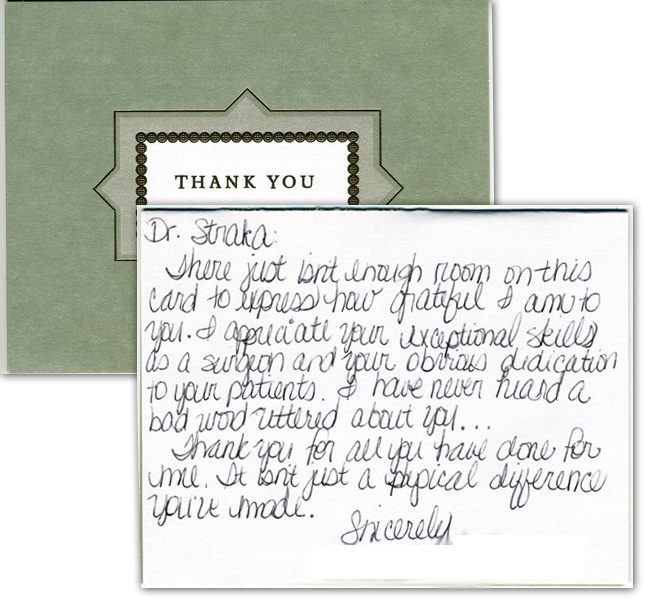 THANK YOU
Dr. Straka:
There just isn't enough room on this
card to express how grateful I am to
you. I appreciate your exceptional skills
as a surgeon and your obvious dedication
to your patients. I have never heard a
bad word uttered about you...
Thank you for all you have done for
me. It isn't just a physical difference
you've made.
Sincerely